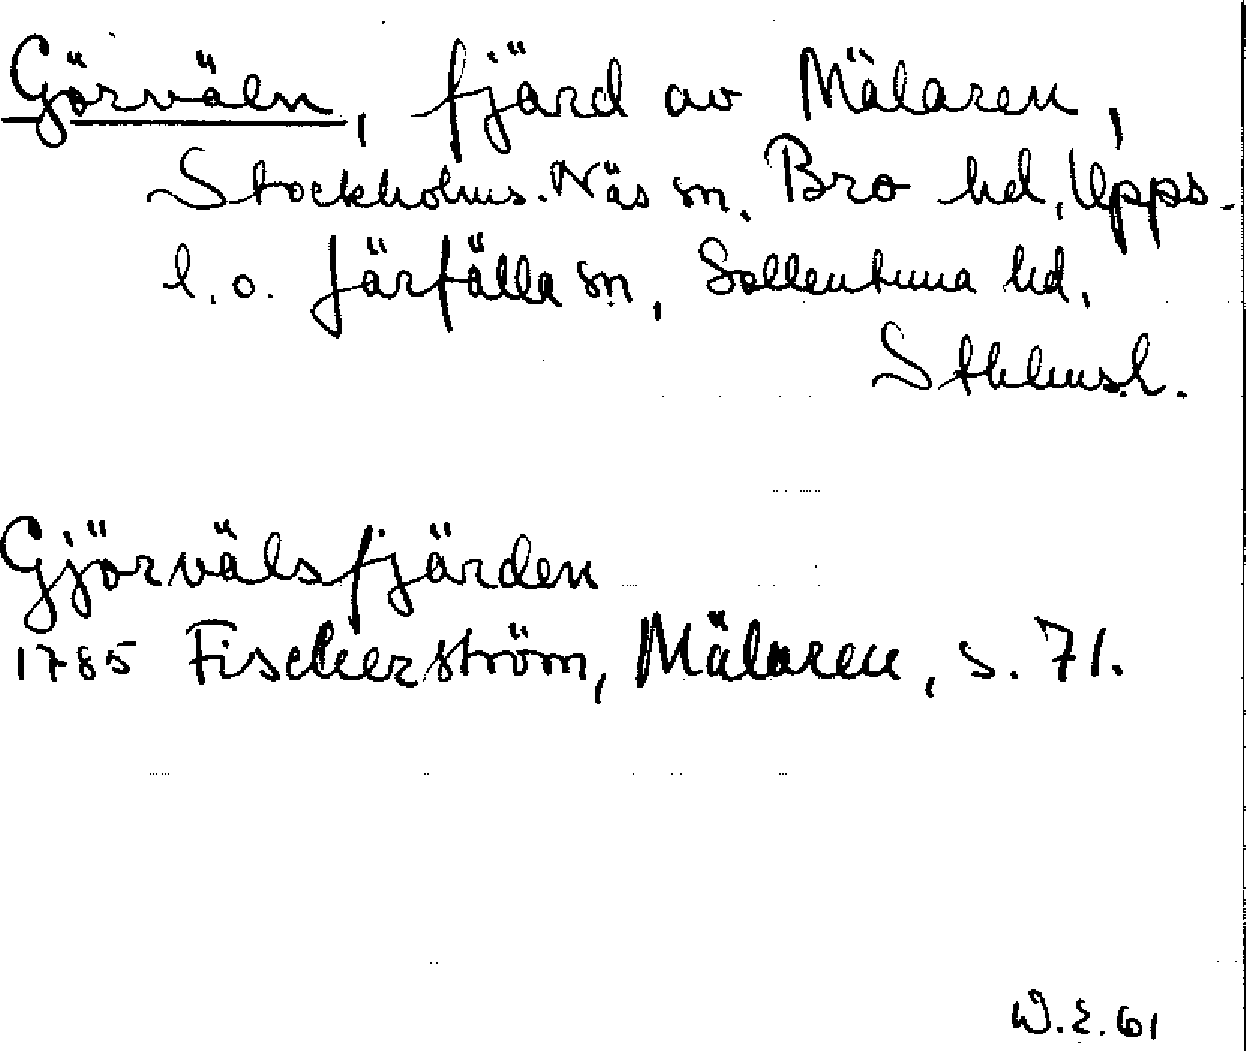 Görväln, fjärd av Mälaren,
Stockholms-Näs sn, Bro hd, Upps.
l. o. Järfälla sn, Sollentuna hd,
Sthlms.l.
Gjörvälsfjärden
1785 Fischerström, Mälaren, s. 71.
W.E. 61